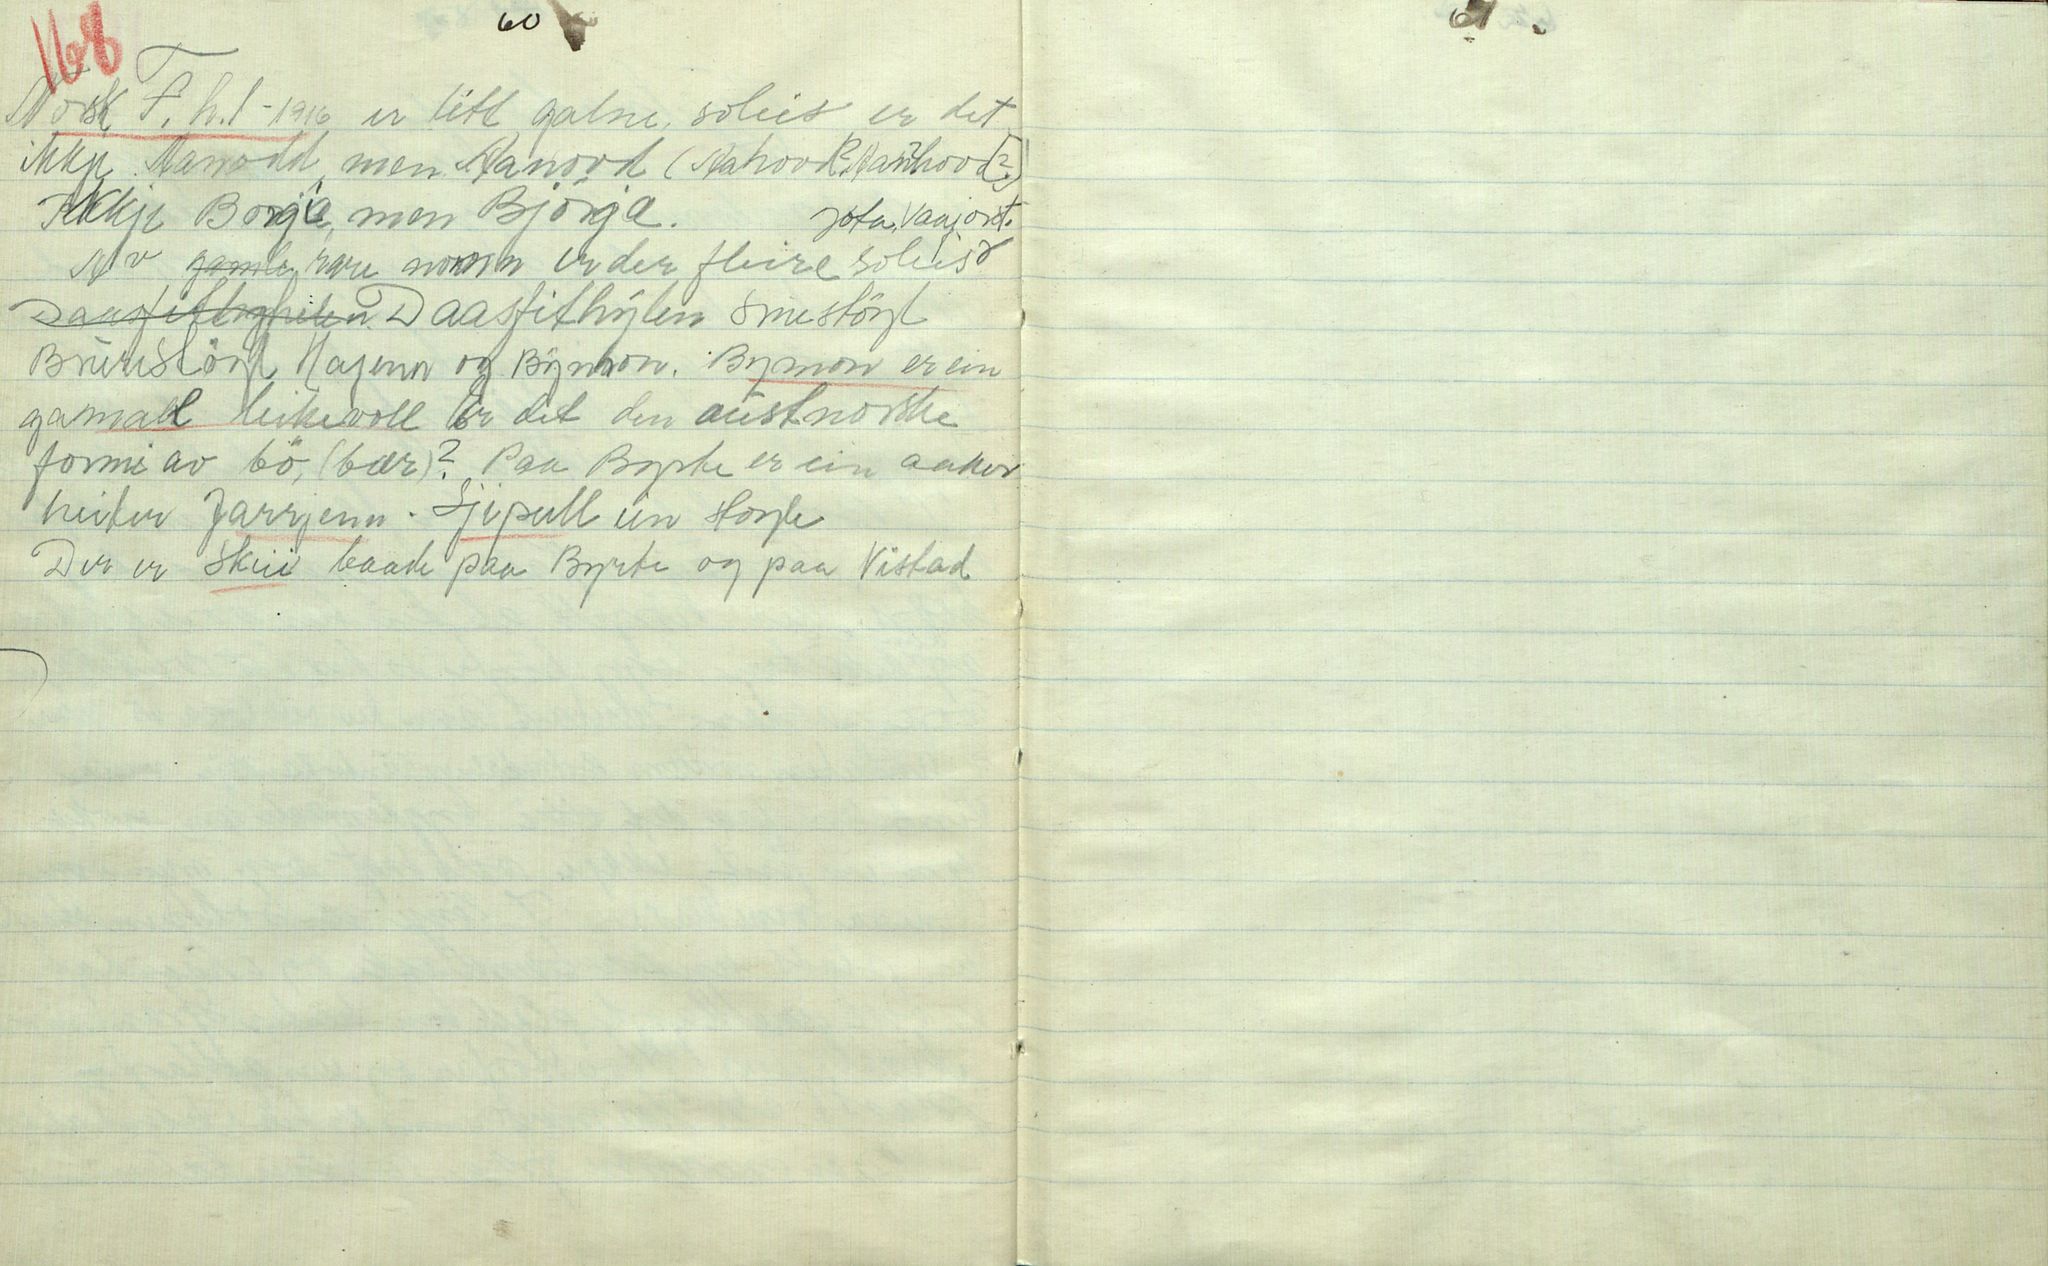 60
61
168
Norsk F.h.l-1916 er litt galne, soleis er det
ikkje Aamodd, men Aanovd (Aahovd? Aanhovd?)
Ikkje Borgja, men Björgja.
Jota, Vaajord.
Av gamle rare nomn er der fleire soleis
Daasfithylen Daasfithylen Smestöyl
Brurestöyl Hagenn og Bymon. Bymon er ein
gamall leikevoll Er det den austnorske
formi av bö, (bær)? Paa Byrte er ein aaker
heiter Jarrjenn. Sjipull ein stoyle
Der er Skui baade paa Byrte og paa Vistad